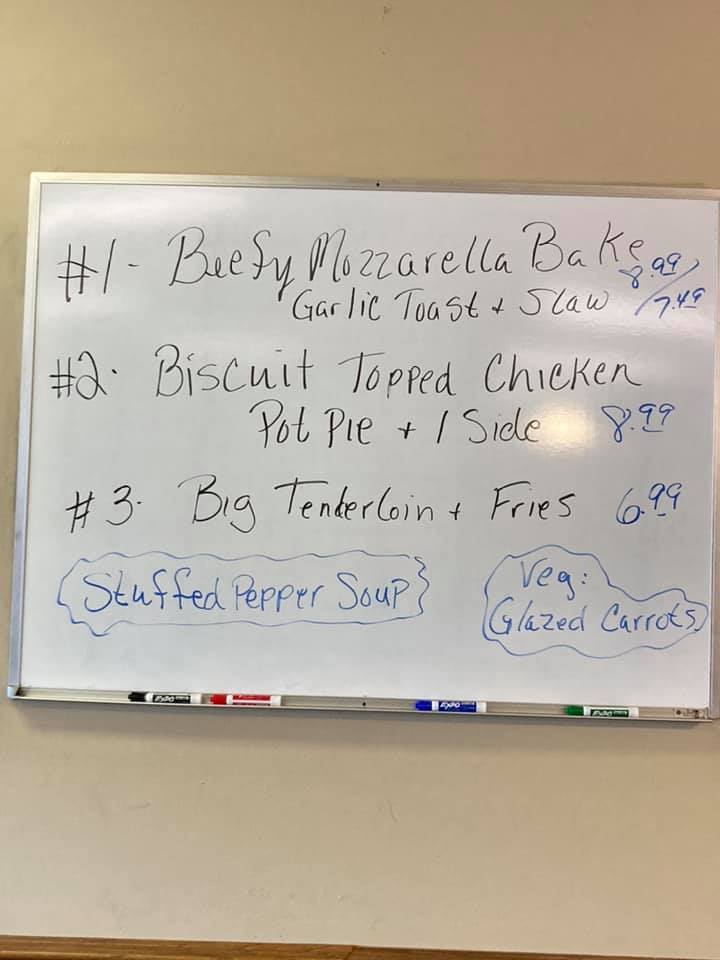 #1- Beefy Mozzarella Bake 8.99/
Garlic Toast + Slaw 7.49
#2. Biscuit Topped Chicken
Pot Pie + 1 Side 8.99
#3. Big Tenderloin + Fries 6.99
Stuffed Pepper Soup
Veg:
Glazed Carrots
EXPO EXPO EXPO